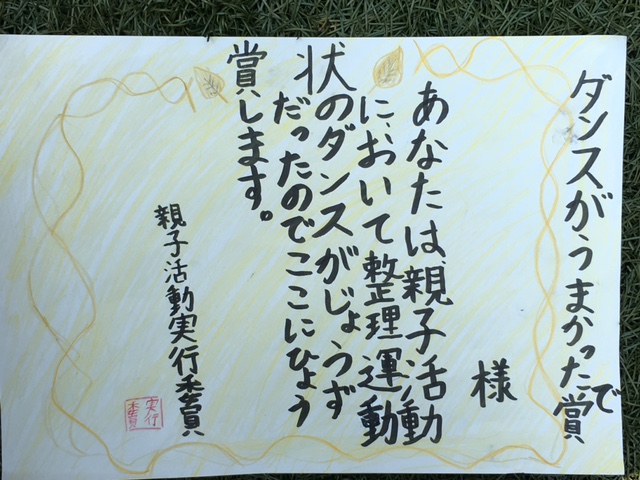 ダンスがうまかったで賞
様
あなたは親子活動
において整理運動
状のダンスがじょうず
だったのでここにひょう
賞します。
親子活動実行委員
実行
委員